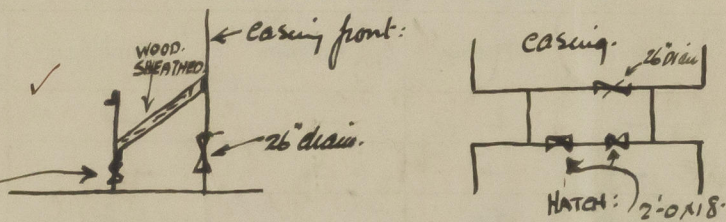 casing front:
WOOD.
SHEATHED
26" drain.
casing.
26" Drain
HATCH: 2'-0 x 18"